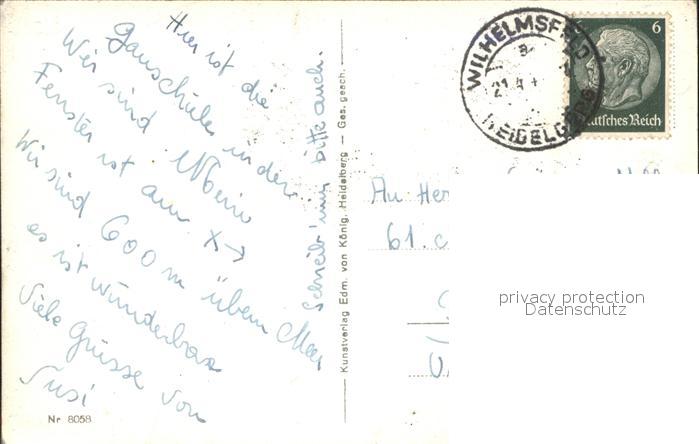 Hier ist die
Gauschule in der
Wir sind
Fenster ist am X→
Wir sind 600 m überm Meer
es ist wunderbar
Viele Grüsse von
Susi
Schreib' mir bitte auch.
Nr 8058
Kunstverlag Edm. von König, Heidelberg – Ges. gesch.
WILHELMSFELD
HEIDELBERG
6
Deutsches Reich
An Her
61.
privacy protection
Datenschutz